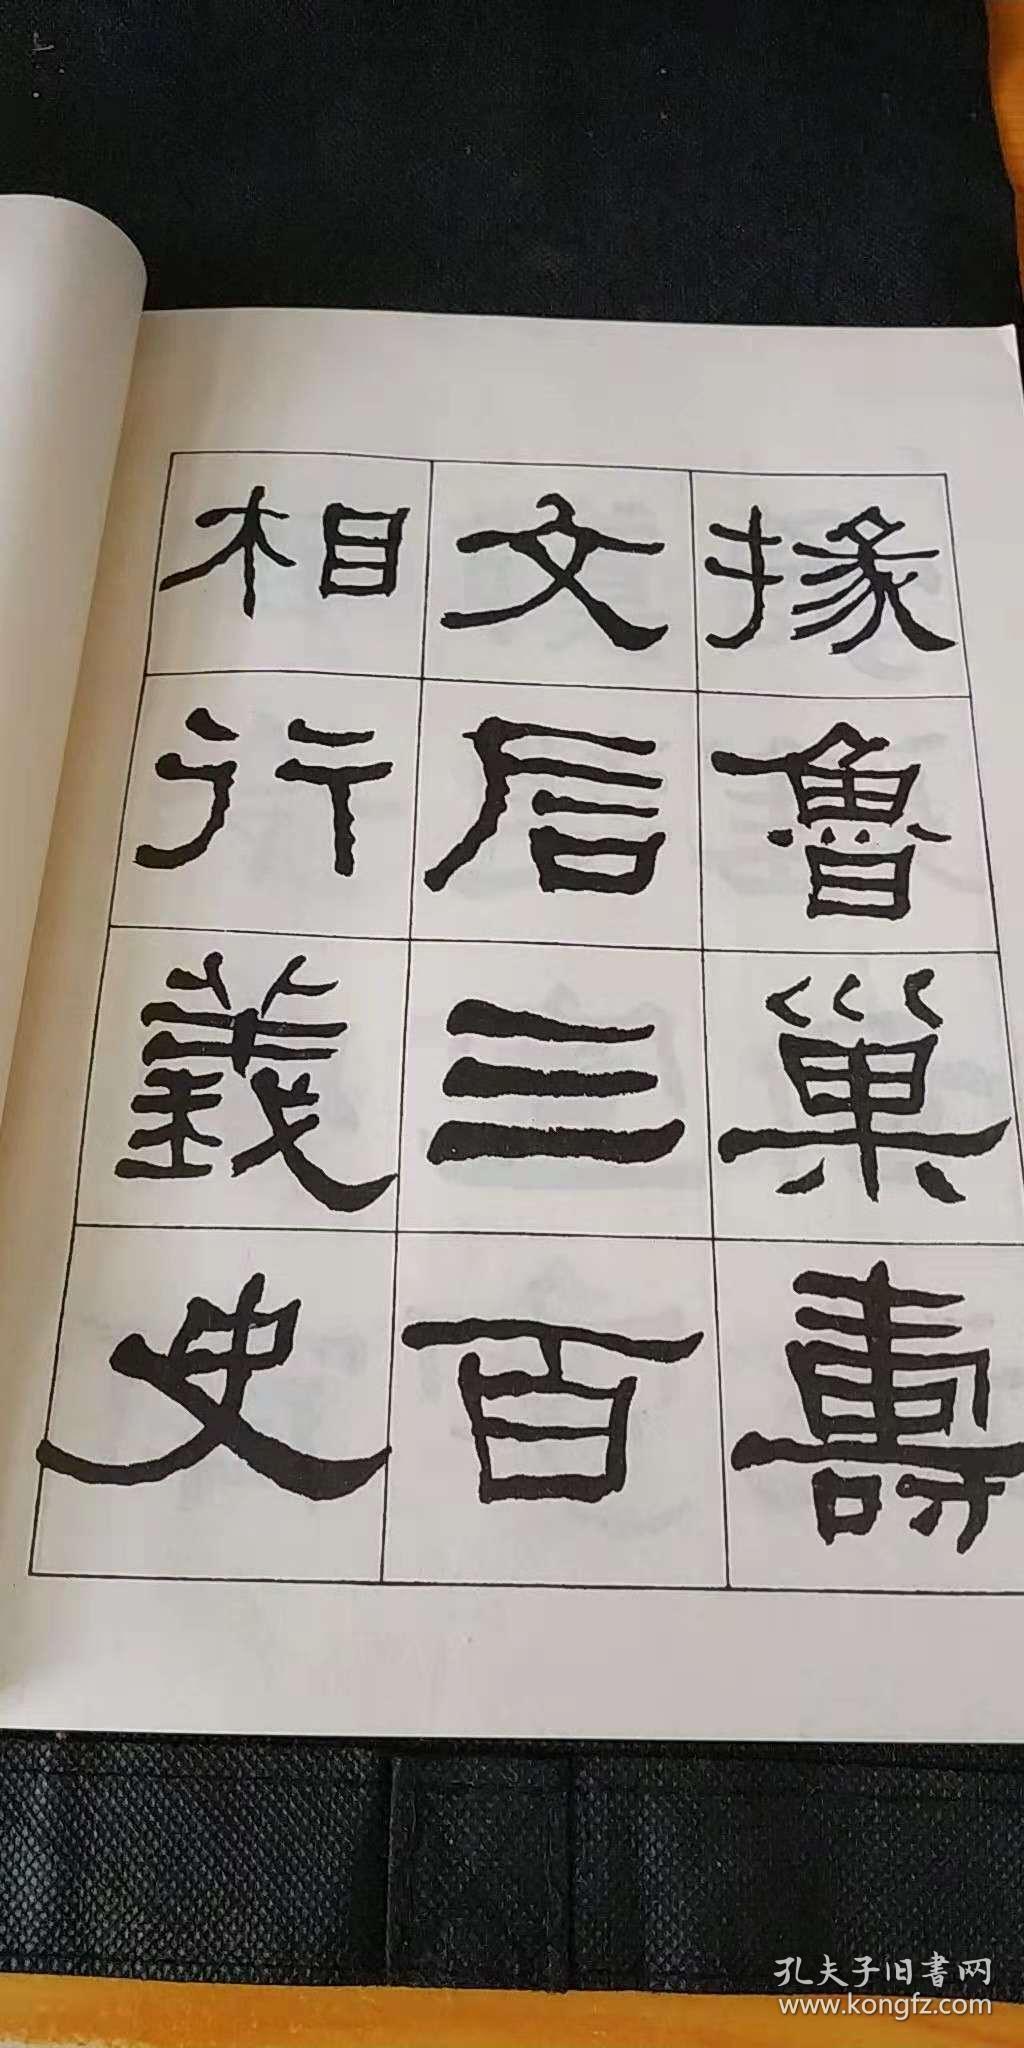 掾魯巢壽
文后三百
相行義史
孔夫子旧書网
www.kongfz.com